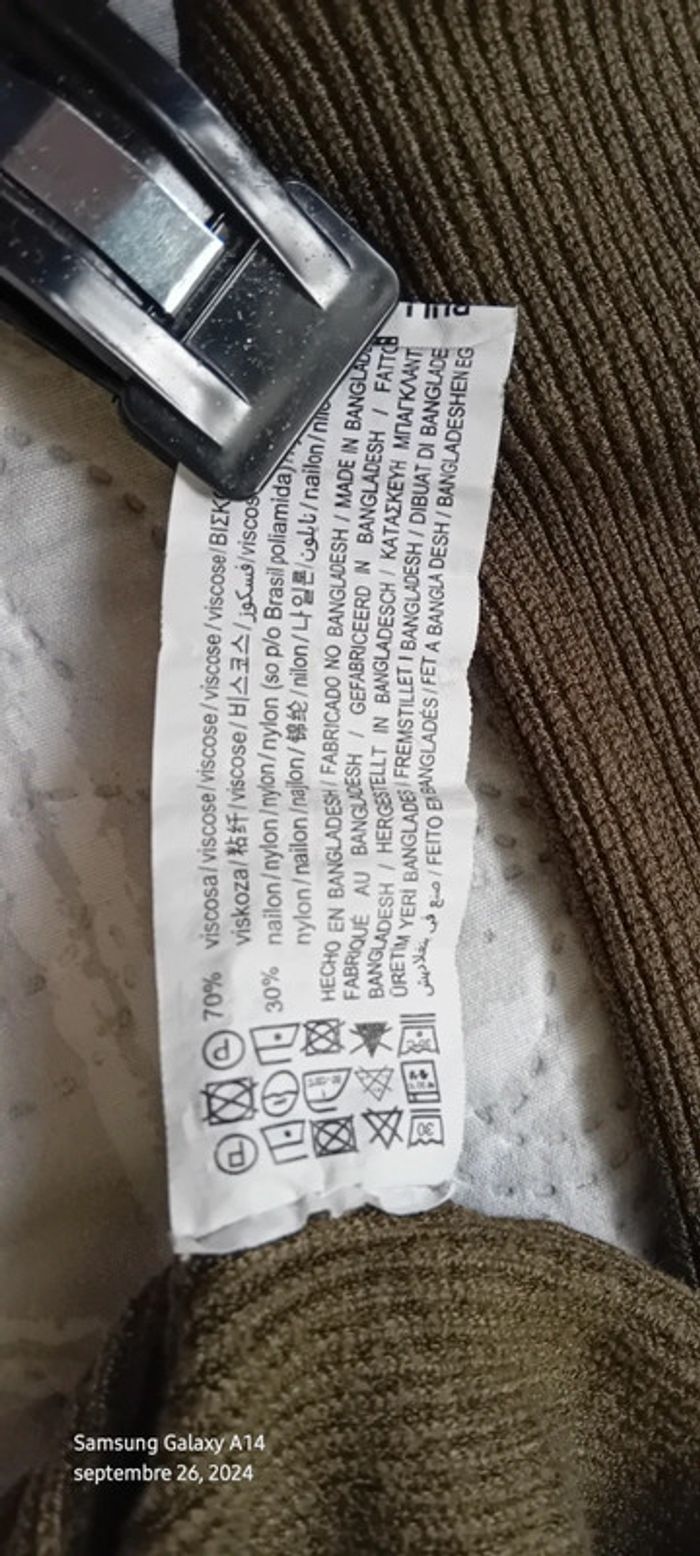 70% viscosa/viscose/viscose/viscose/viscose/
viskoza/粘纤/viscose/비스코스/فسكوز/viscos
30% nailon/nylon/nylon/nylon (so p/o Brasil poliamida)
nylon/nailon/najlon/锦纶/nilon/나일론/نايلون/nailon/
HECHO EN BANGLADESH/ FABRICADO NO BANGLADESH / MADE IN BANGLADE
FABRIQUÉ AU BANGLADESH / GEFABRICEERD IN BANGLADESH / FATTO
BANGLADESH / HERGESTELLT IN BANGLADESCH / ΚΑΤΑΣΚΕΥΗ ΜΠΑΓΚΛΑΝΤ
ÜRETIM YERİ BANGLADEŞ / FREMSTILLET I BANGLADESH / DIBUAT DI BANGLADE
صنع في بنغلاديش / FEITO EN BANGLADÉS / FET A BANGLA DESH / BANGLADESHEN EG
30
30
Samsung Galaxy A14
septembre 26, 2024